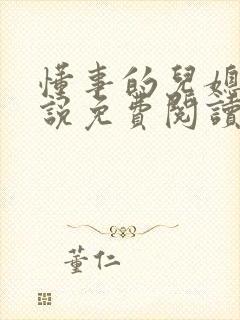 懂事的兒媳
說免費閱讀
董仁